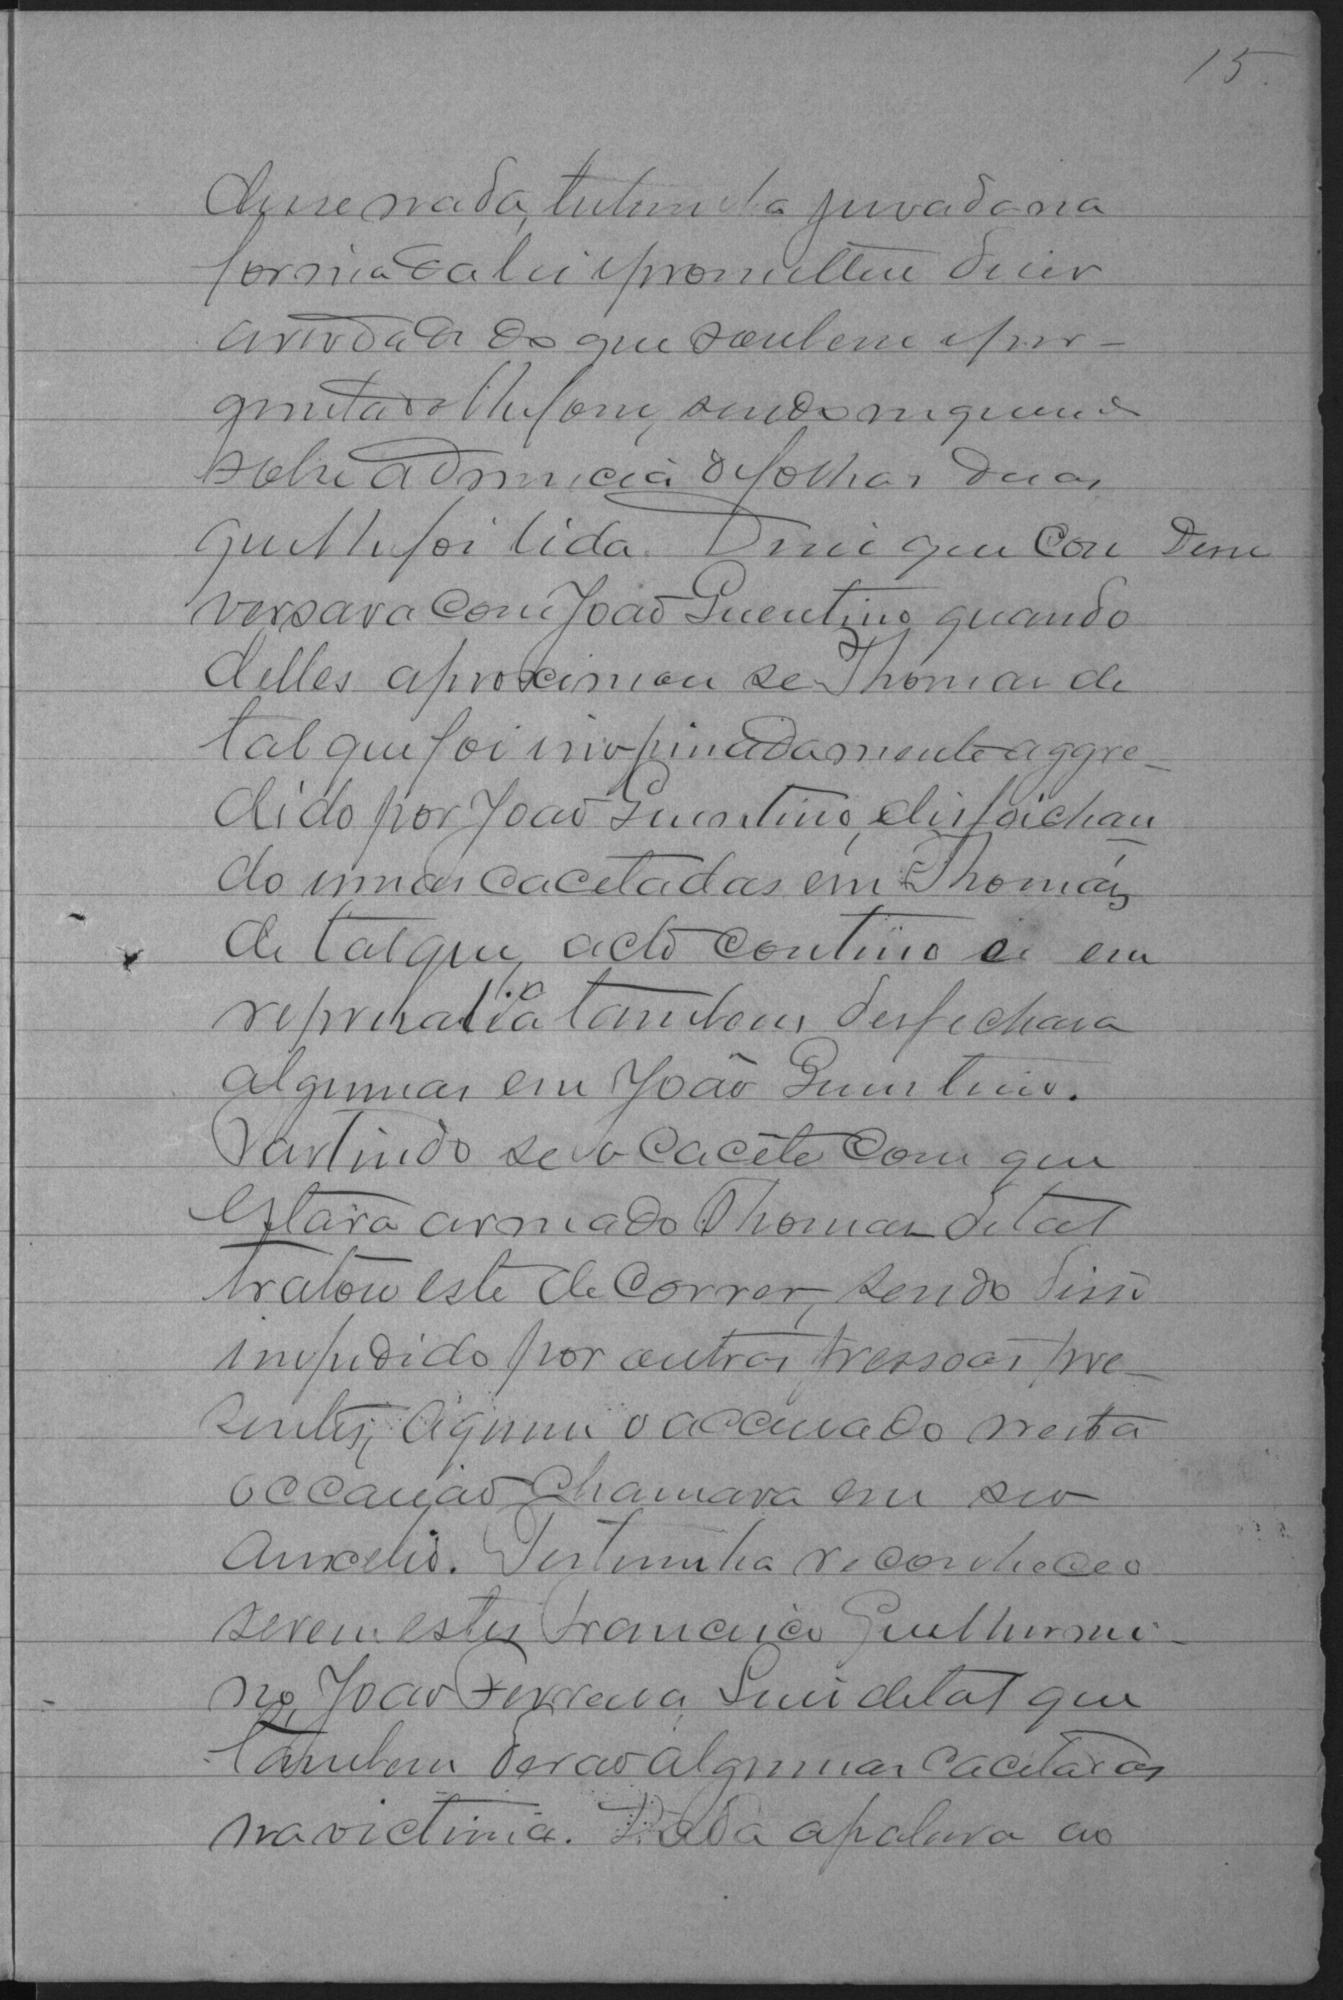 15.
disse nada, testemunha jurada na
forma da lei e prometteu diser
a verdade do que soubesse e per-
guntado lhe fosse, sendo inquerida
sobre a denuncia de folhas duas
que lhe foi lida. Disse que con Disse
versava com João Quentino quando
delles aproximou se Thomas de
tal que foi inopinadamente aggre-
dido por João Quintino, disfeichan
do umas cacetadas em Thomás
de tal que, acto continuo e em
represalia tambem desfechara
algumas em João Quintino.
Partindo se o cacête com que
estava armado Thomas de tal
tratou este de correr, sendo disso
impedido por outras pessoas pre-
sentes, a quem o accusado nesta
occasião chamara em seu
auxelio. Testemunha reconheceo
serem estes Francisco Guilhermi-
no, João Ferreira, Luis de tal que
tambem derão algumas cacetadas
na victima. Dada a palavra ao